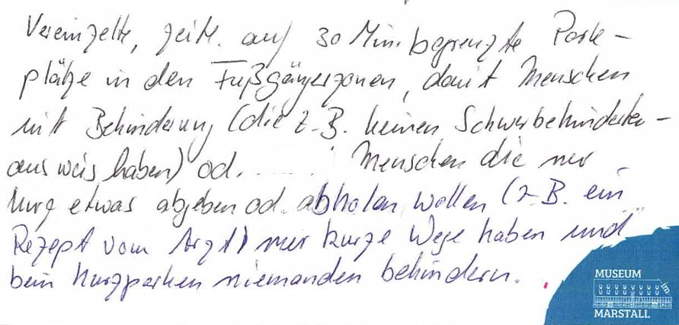 Vereinzelte, zeitl. auf 30 Min. begrenzte Park-
plätze in den Fußgängerzonen, damit Menschen
mit Behinderung (die z.B. keinen Schwerbehinderten-
ausweis haben) od. ...... Menschen die nur
kurz etwas abgeben od. abholen wollen (z.B. ein
Rezept vom Arzt) nur kurze Wege haben und
beim Kurzparken niemanden behindern.
MUSEUM
im
MARSTALL